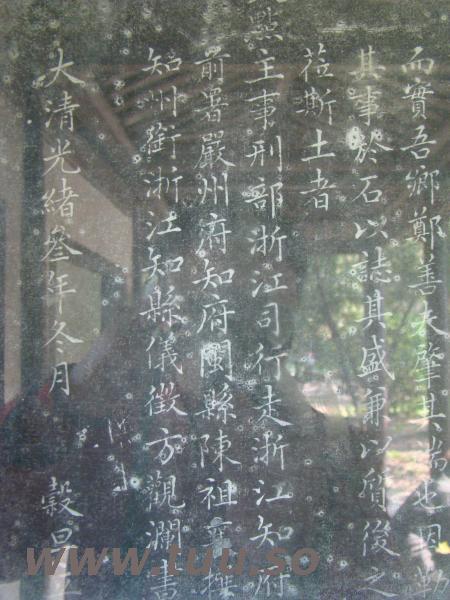 而實吾鄉鄭善夫肇其端也因勒
其事於石以誌其盛兼以質後之
莅斯土者
點主事刑部浙江司行走浙江知府
前署嚴州府知府閩縣陳祖 撰
知州銜浙江知縣儀徵方觀瀾書
大清光緒叄年冬月 穀旦立
www.tuu.so